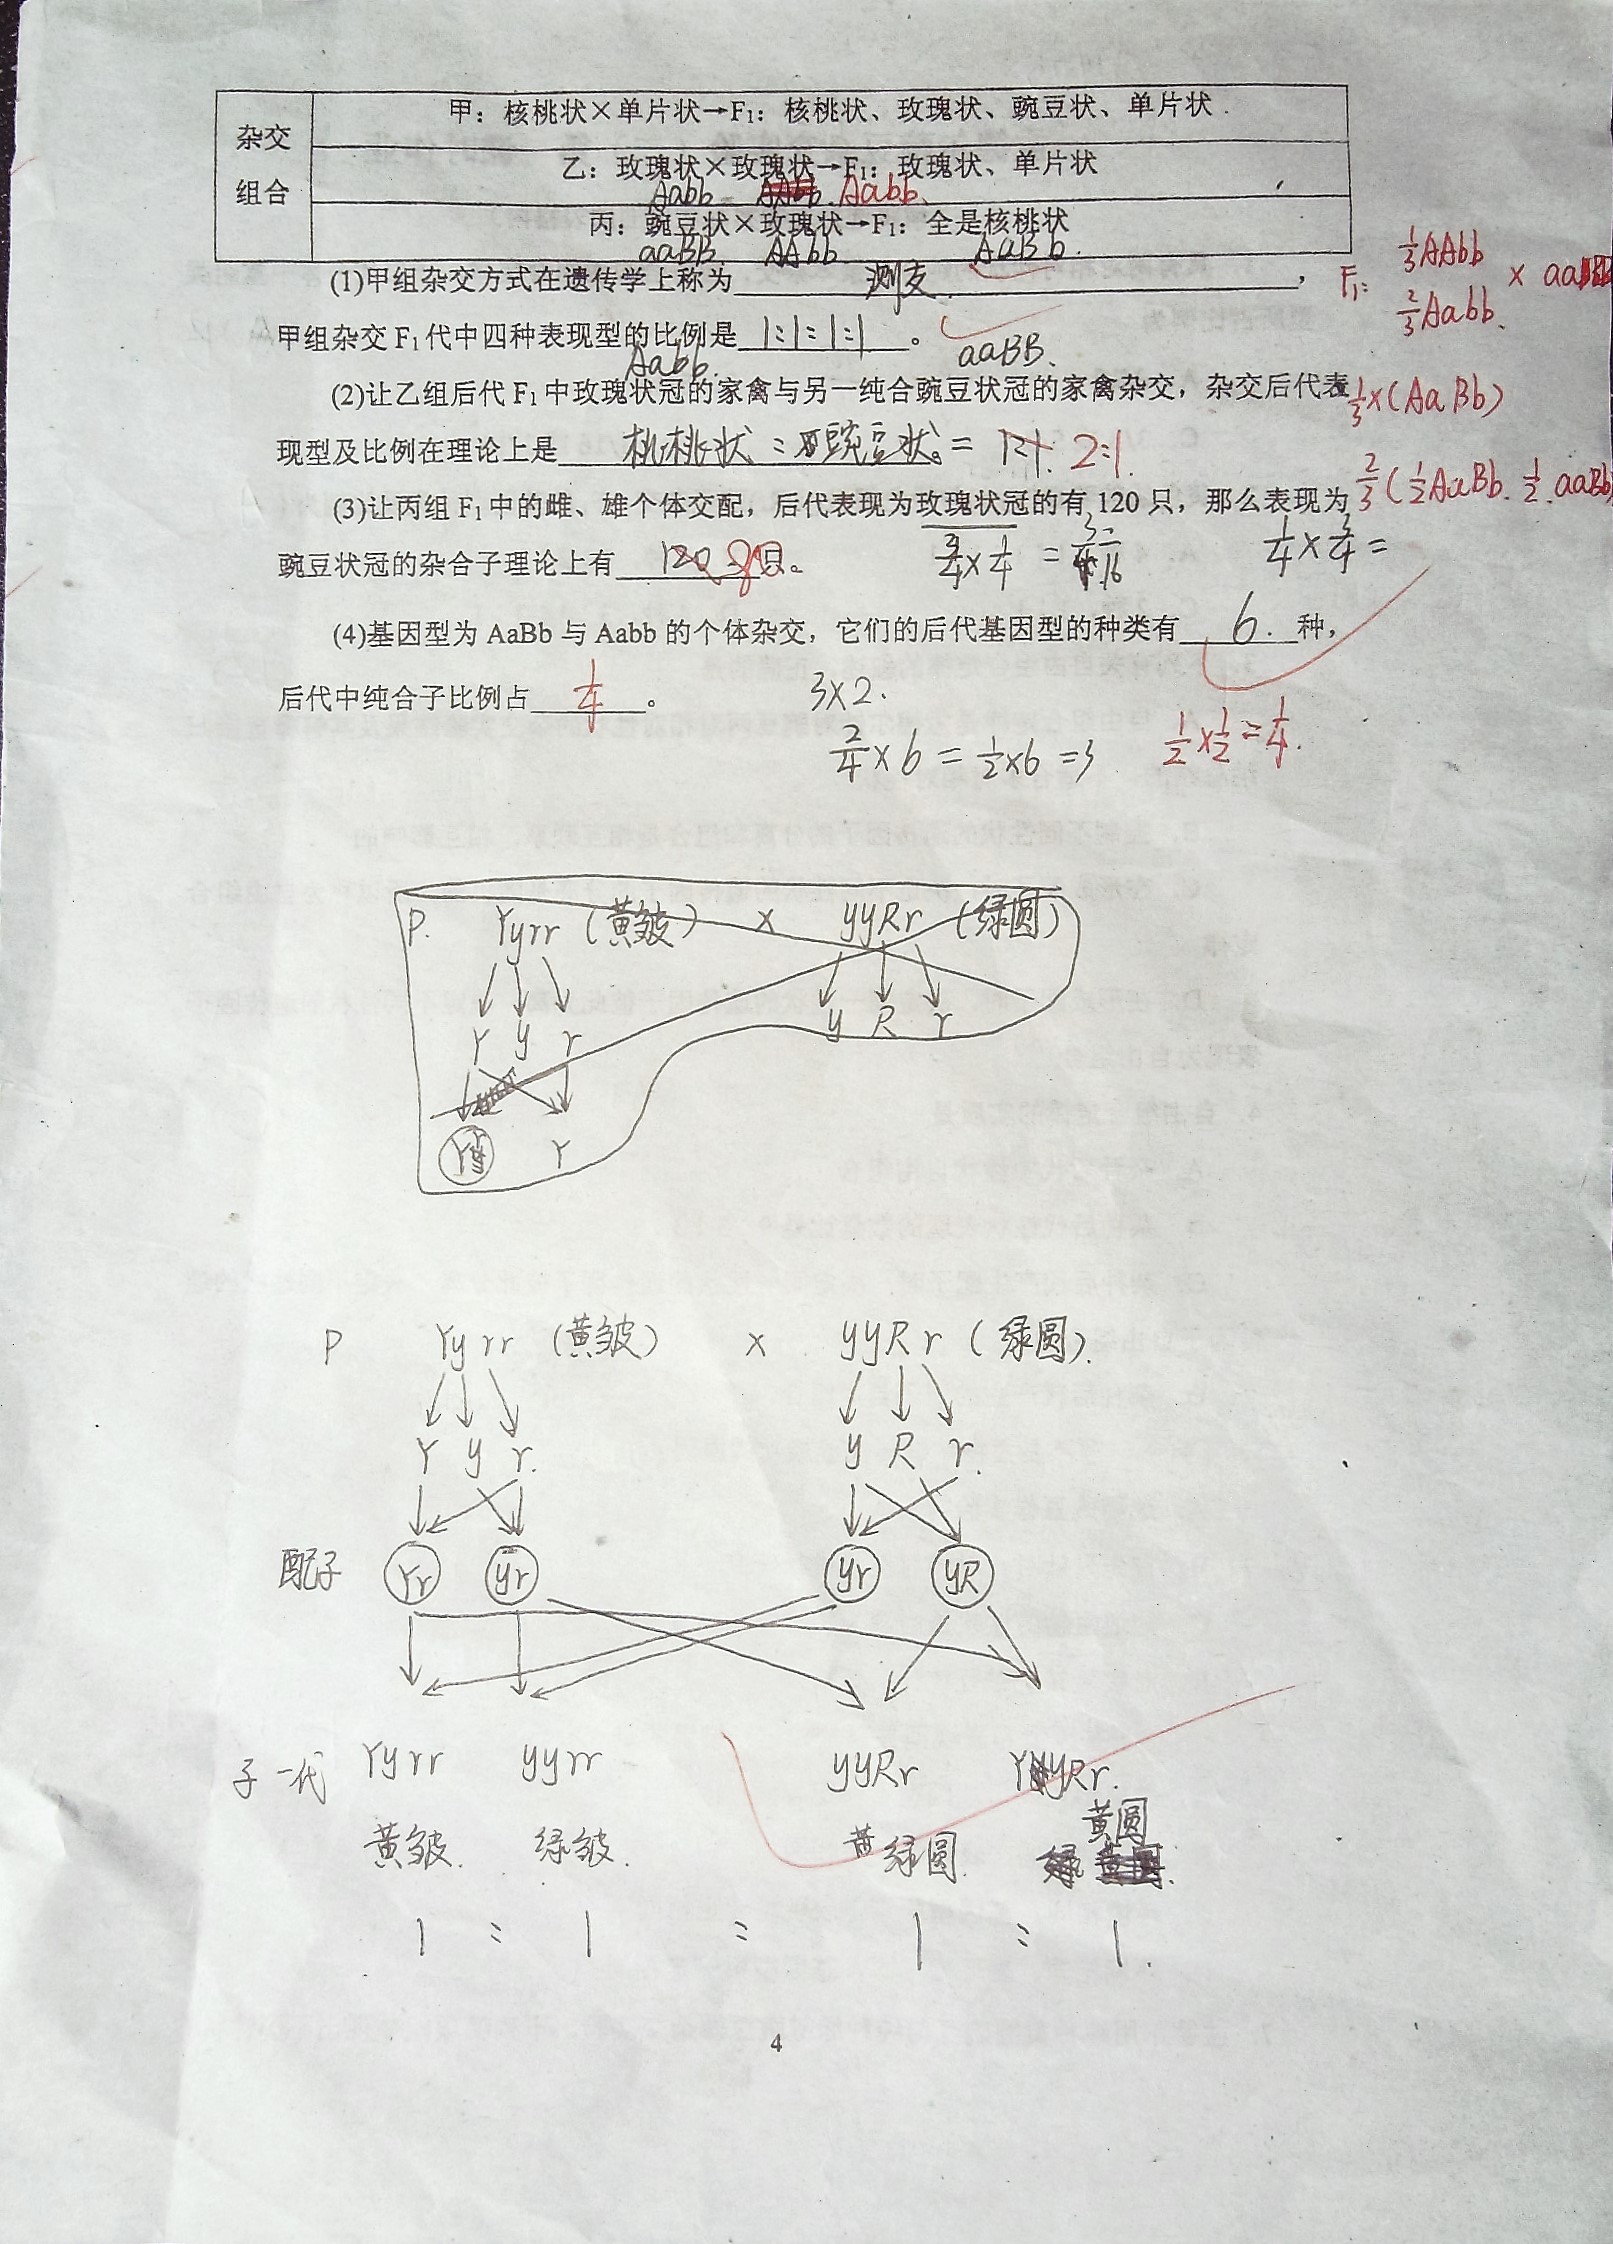 杂交组合
甲：核桃状×单片状→F₁：核桃状、玫瑰状、豌豆状、单片状
乙：玫瑰状×玫瑰状→F₁：玫瑰状、单片状
Aabb Aabb.
丙：豌豆状×玫瑰状→F₁：全是核桃状
aaBB. AAbb AaBb.
(1)甲组杂交方式在遗传学上称为 测交 ，
F₁: 1/3AAbb × aa
2/3Aabb.
甲组杂交F₁代中四种表现型的比例是 1:1:1:1 。
Aabb. aaBB.
(2)让乙组后代F₁中玫瑰状冠的家禽与另一纯合豌豆状冠的家禽杂交，杂交后代表
1/3×(AaBb)
现型及比例在理论上是 桃桃状：豌豆状。= 1:1. 2:1.
2/3(1/2AaBb. 1/2.aaBb)
(3)让丙组F₁中的雌、雄个体交配，后代表现为玫瑰状冠的有120只，那么表现为
豌豆状冠的杂合子理论上有 120 80 只。
3/4×1/4 = 3/16 1/4×3/4=
(4)基因型为AaBb与Aabb的个体杂交，它们的后代基因型的种类有 6. 种，
后代中纯合子比例占 1/4 。
3×2.
2/4×6=1/2×6=3 1/2×1/2=1/4.
P. Yyrr (黄皱) × yyRr (绿圆)
Y y r y R r
Y r
P Yyrr (黄皱) × yyRr (绿圆).
Y y r. y R r.
配子 Yr yr yr yR
子一代 Yyrr yyrr yyRr YyRr.
黄皱. 绿皱. 黄绿圆. 黄圆
1 : 1 : 1 : 1.
4